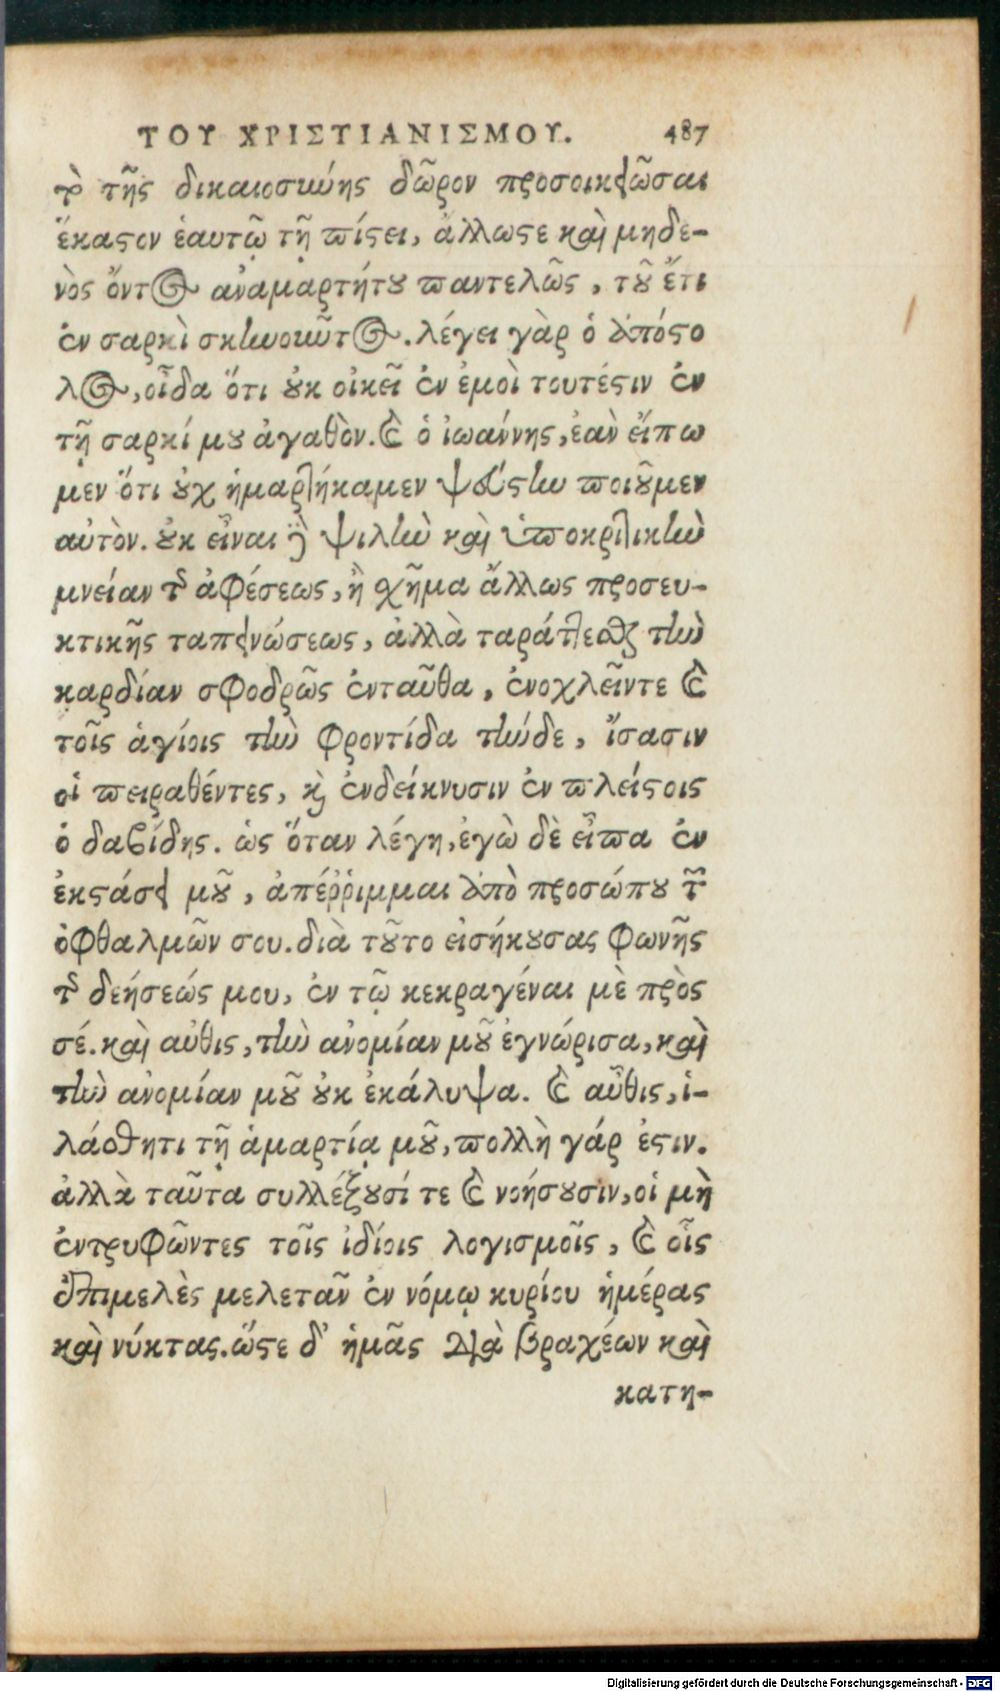 ΤΟΥ ΧΡΙΣΤΙΑΝΙΣΜΟΥ. 487
τὸ τῆς δικαιοσύνης δῶρον προσοικειῶσαι
ἕκαστον ἑαυτῷ τῇ πίστει, ἄλλωστε καὶ μηδε-
νὸς ὄντος ἀναμαρτήτου παντελῶς, τοῦ ἔτι
ἐν σαρκὶ σκηνοῦντος. λέγει γὰρ ὁ ἀπόστο
λος, οἶδα ὅτι οὐκ οἰκεῖ ἐν ἐμοὶ τουτέστιν ἐν
τῇ σαρκί μου ἀγαθὸν. καὶ ὁ ἰωάννης, ἐὰν εἴπω
μεν ὅτι οὐχ ἡμαρτήκαμεν ψεύστην ποιοῦμεν
αὐτὸν. οὐκ εἶναι δὲ ψιλὴν καὶ ὑποκριτικὴν
μνείαν τῆς ἀφέσεως, ἢ σχῆμα ἄλλως προσευ-
κτικῆς ταπεινώσεως, ἀλλὰ ταράττεσθαι τὴν
καρδίαν σφοδρῶς ἐνταῦθα, ἐνοχλεῖντε καὶ
τοῖς ἁγίοις τὴν φροντίδα τήνδε, ἴσασιν
οἱ πειραθέντες, καὶ ἐνδείκνυσιν ἐν πλείστοις
ὁ δαβίδης. ὡς ὅταν λέγη, ἐγὼ δὲ εἶπα ἐν
ἐκστάσει μοῦ, ἀπέῤῥιμμαι ἀπὸ προσώπου τῶν
ὀφθαλμῶν σου. διὰ τοῦτο εἰσήκουσας φωνῆς
τῆς δεήσεώς μου, ἐν τῷ κεκραγέναι μὲ πρὸς
σέ. καὶ αὖθις, τὴν ἀνομίαν μοῦ ἐγνώρισα, καὶ
τὴν ἀνομίαν μοῦ οὐκ ἐκάλυψα. καὶ αὖθις, ἱ-
λάσθητι τῇ ἁμαρτίᾳ μοῦ, πολλὴ γάρ ἐστιν.
ἀλλὰ ταῦτα συλλέξουσί τε καὶ νοήσουσιν, οἱ μὴ
ἐντρυφῶντες τοῖς ἰδίοις λογισμοῖς, καὶ οἷς
ἐπιμελὲς μελετᾶν ἐν νόμῳ κυρίου ἡμέρας
καὶ νύκτας. ὥστε δ' ἡμᾶς διὰ βραχέων καὶ
κατη-
Digitalisierung gefördert durch die Deutsche Forschungsgemeinschaft - DFG